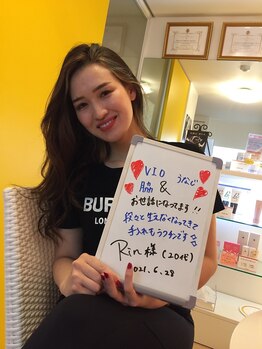 VIO うなじ
脇 &
お世話になってます!!
段々と生えなくなってきて
手入れもラクチンです
Rin様 (20代)
2021.6.28
BUR
LON